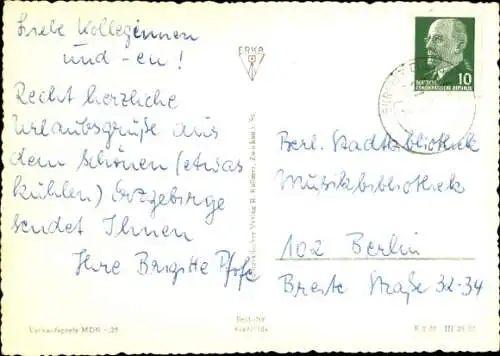 Liebe Kolleginnen
und -en!
Recht herzliche
Urlaubsgrüße aus
dem schönen (etwas
kühlen) Erzgebirge
sendet Ihnen
Ihre Brigitte
ERKA
10
DEUTSCHE
DEMOKRATISCHE REPUBLIK
Berl. Stadtbibliothek
Musikbibliothek
102 Berlin
Breite Straße 32-34
Verkaufspreis MDN -,25
Best.-Nr.